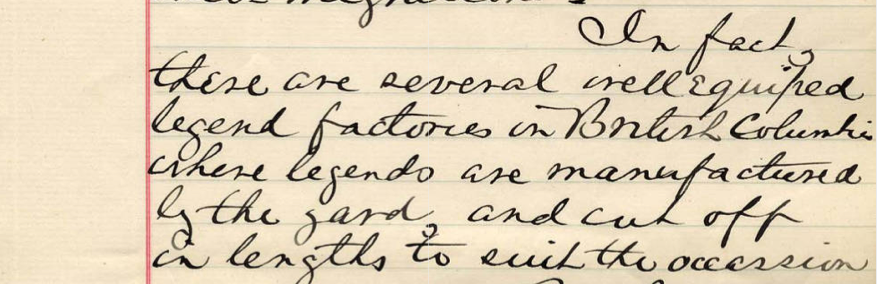 In fact,
there are several well equiped
legend factories in British Columbia
where legends are manufactured
by the yard, and cut off
in lengths to suit the occassion